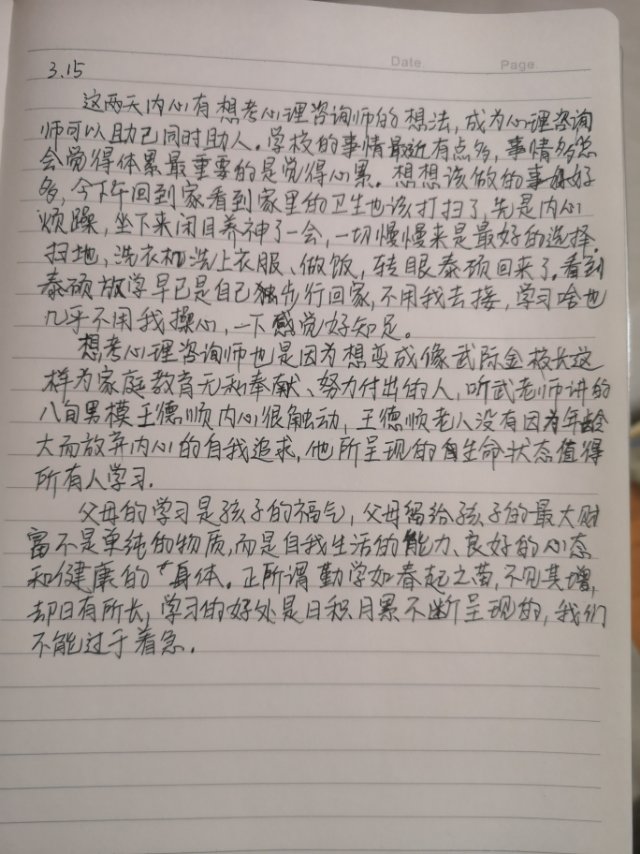 Date.
Page.
3.15
这两天内心有想考心理咨询师的想法,成为心理咨询
师可以助己同时助人。学校的事情最近有点多,事情多总
会觉得体累最重要的是觉得心累。想想该做的事好
多,今下午回到家看到家里的卫生也该打扫了,先是内心
烦躁,坐下来闭目养神了一会,一切慢慢来是最好的选择.
扫地、洗衣机洗上衣服、做饭,转眼泰硕回来了.看到
泰硕放学早已是自己独步行回家,不用我去接,学习啥也
几乎不用我操心,一下感觉好知足。
想考心理咨询师也是因为想变成像武际金校长这
样为家庭教育无私奉献、努力付出的人,听武老师讲的
八旬男模王德顺内心很触动,王德顺老人没有因为年龄
大而放弃内心的自我追求,他所呈现的生命状态值得
所有人学习.
父母的学习是孩子的福气,父母留给孩子的最大财
富不是单纯的物质,而是自我生活的能力、良好的心态
和健康的身体。正所谓勤学如春起之苗,不见其增,
却日有所长,学习的好处是日积月累不断呈现的,我们
不能过于着急.